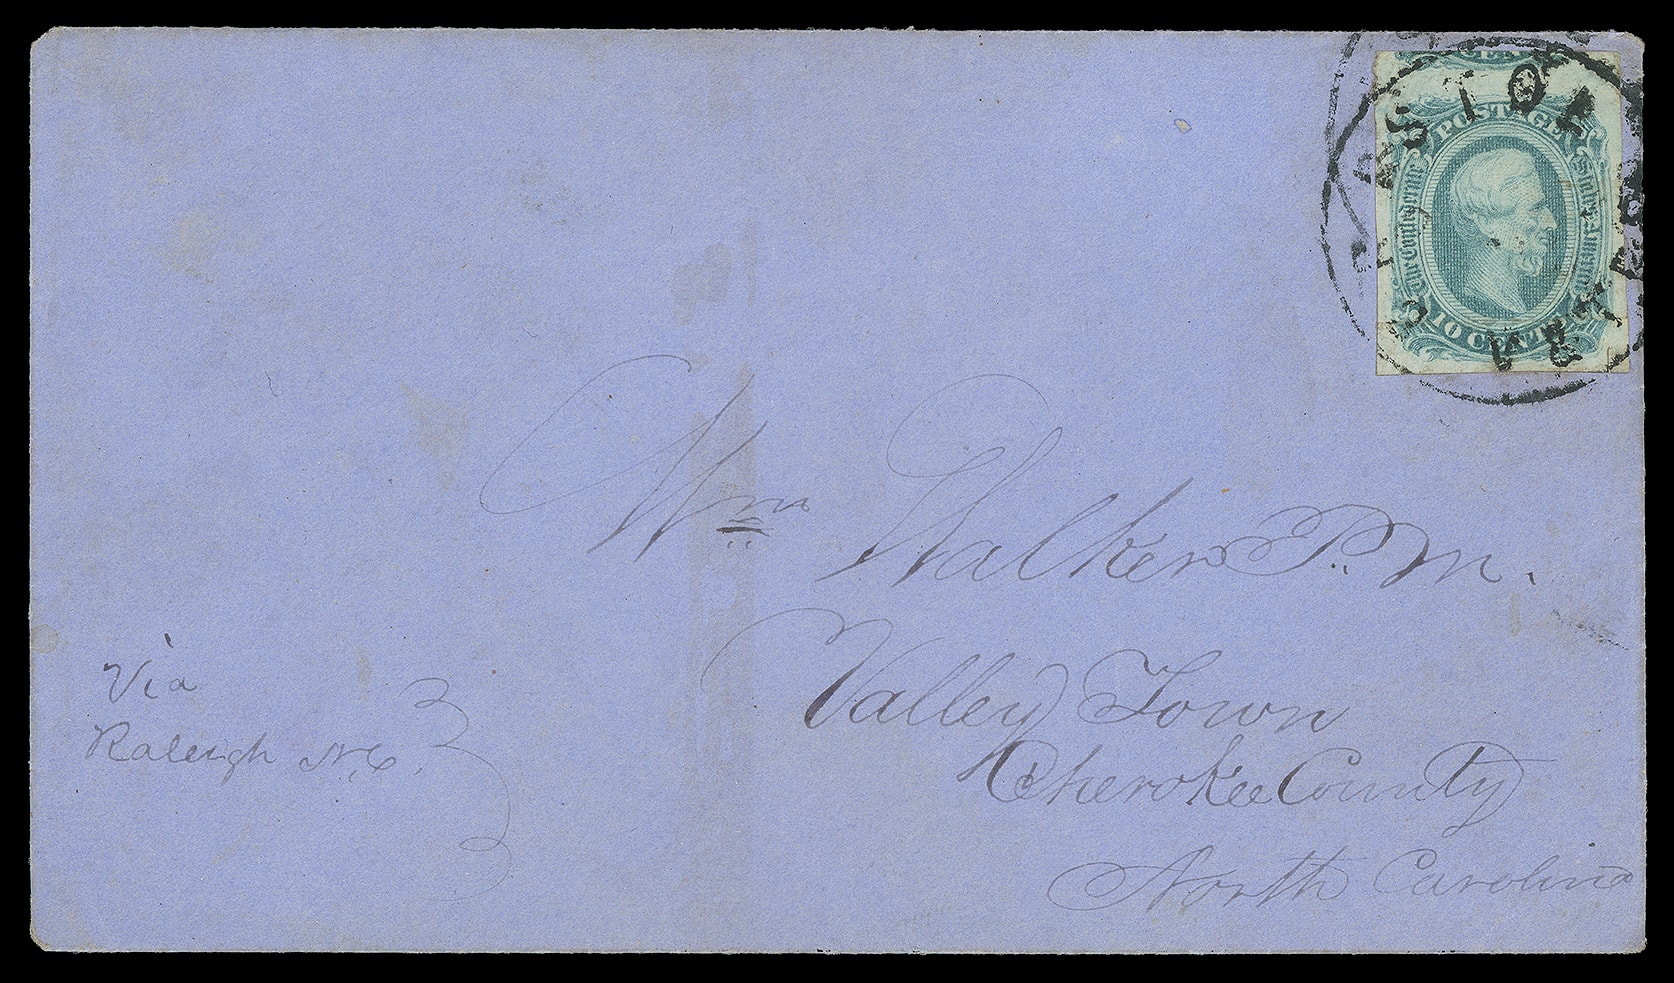 CENTS
POSTAGE
The Confederate States of America
10 CENTS
Wm Walker P.M.
Valley Town
Cherokee County
North Carolina
Via
Raleigh N.C.